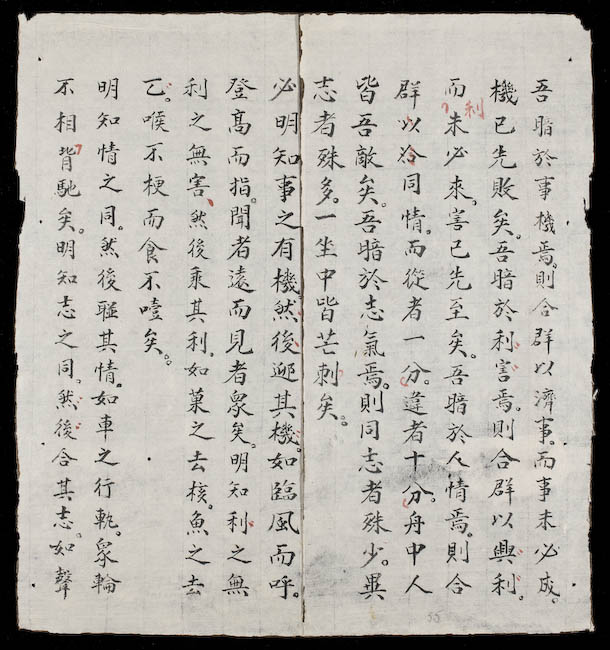 吾暗於事機焉。則合群以濟事。而事未必成。
機已先敗矣。吾暗於利害焉。則合群以興利。
而利未必來。害已先至矣。吾暗於人情焉。則合
群以洽同情。而從者一分。違者十分。舟中人
皆吾敵矣。吾暗於志氣焉。則同志者殊少。異
志者殊多。一坐中皆芒刺矣。
必明知事之有機。然後迎其機。如臨風而呼。
登高而指。聞者遠而見者眾矣。明知利之無
利之無害、然後乘其利。如菓之去核。魚之去
乙。喉不梗而食不噎矣。
明知情之同。然後聯其情。如車之行軌。眾輪
不相背馳矣。明知志之同。然後合其志。如聲